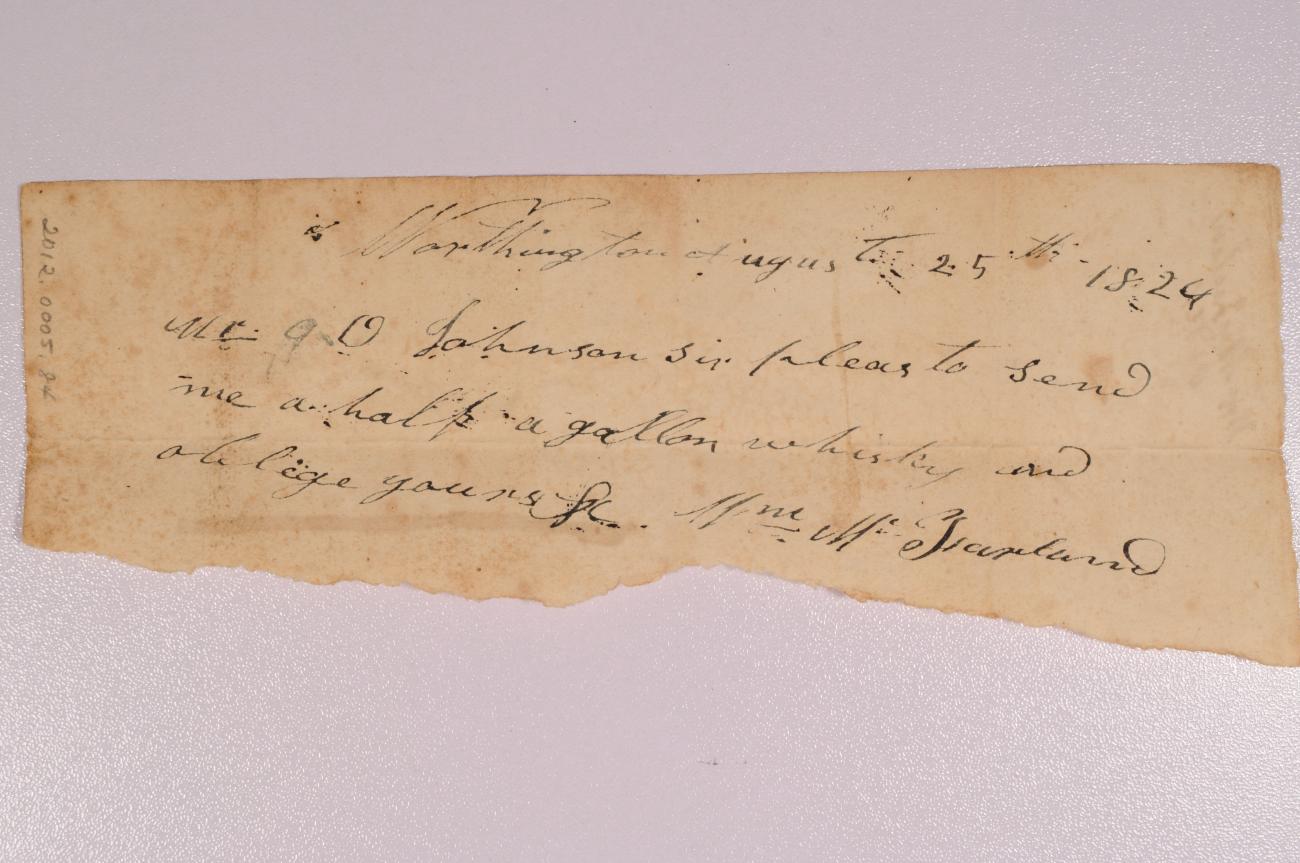 Worthington August 25th 1824
Mr O Johnson sir pleas to send
me a half a gallon whisky and
oblege yours &c. Wm Mc Farland
2012.0005.84